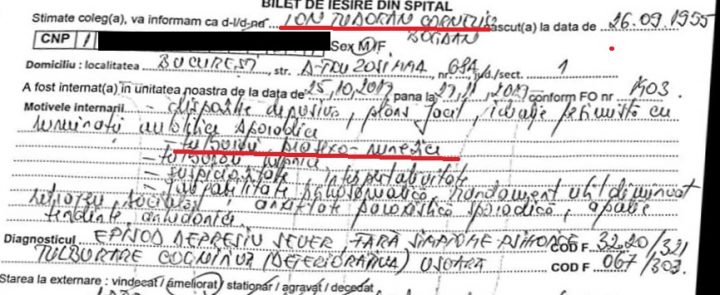 BILET DE IESIRE DIN SPITAL
Stimate coleg(a), va informam ca d-l/d-na ION TUDORAN CORNELIU născut(a) la data de 26.09.1955
BOGDAN
CNP Sex M/F
Domiciliu : localitatea BUCURESTI, str. nr. jud./sect. 1
A fost internat(a) in unitatea noastra de la data de 25.10.2017 pana la 2017 conform FO nr 1903.
Motivele internarii - dispozitie depresiva, plans facil, ideatie pesimista cu
ruminatii autolitice sporadice
- tulburari prosexo-mnezice
- tulburari hipnice
- suspiciozitate, interpretativitate
- randament util diminuat
anxietate paroxistica sporadica, apatie
tendinte anhedonice
Diagnosticul EPISOD DEPRESIV SEVER FARA SIMPTOME PSIHOTICE COD F 32.20/321
TULBURARE COGNITIVA (DETERIORATIVA) USOARA COD F 067/303.
Starea la externare : vindecat / ameliorat / stationar / agravat / decedat